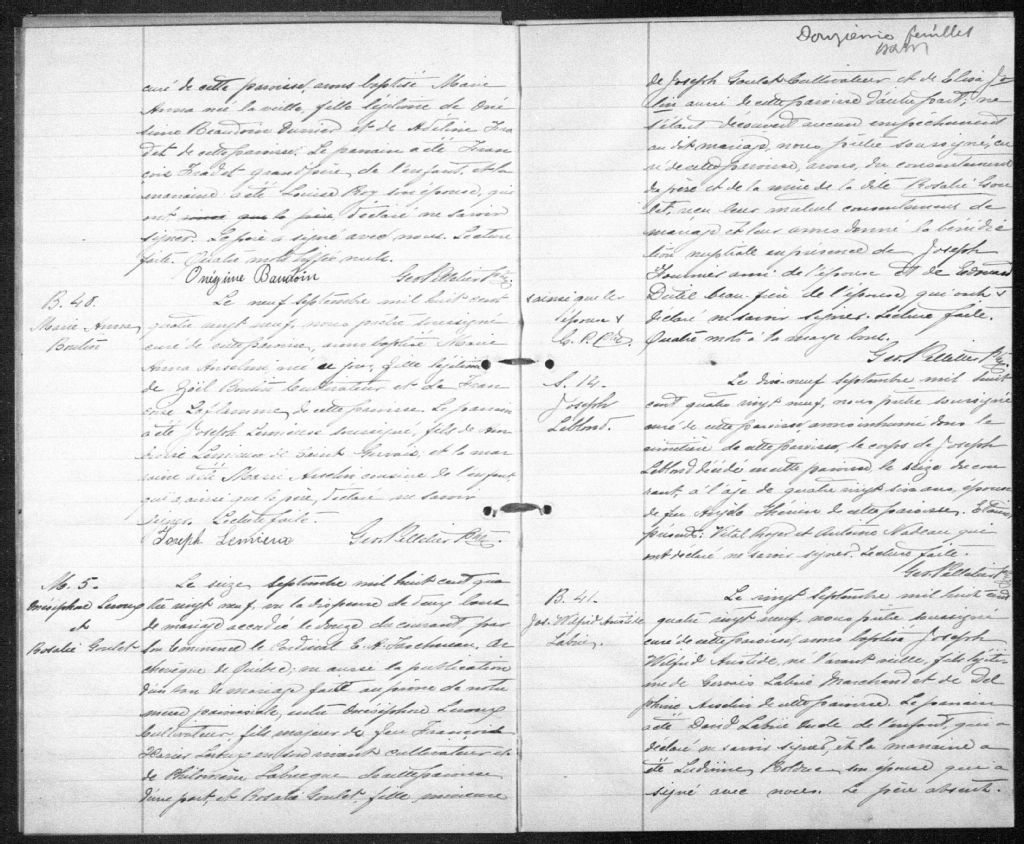 curé de cette paroisse, avons baptisé Marie
Anna née la veille, fille légitime de Oné
sime Beaudoin Junior et de Adéline Fra
det de cette paroisse. Le parrain a été Fran
çois Fradet grand père de l'enfant, et la
marraine a été Louise Roy son épouse, qui
ont le père, déclaré ne savoir
signer. Le père a signé avec nous. Lecture
faite. Quatre mots nuls.
Onézime Baudoin Geo Pelletier Ptre
B. 40.
Marie Anna
Boutin
Le neuf septembre mil huit cent
quatre vingt neuf, nous prêtre soussigné
curé de cette paroisse, avons baptisé Marie
Anna Anselme née ce jour, fille légitime
de Zoël Boutin Cultivateur et de Fran
çoise Laflamme, de cette paroisse. Le parrain
a été Joseph Lemieux soussigné, fils de
Lemieux de Saint Gervais, et la mar
raine a été Marie Anselin cousine de l'enfant,
qui a, ainsi que le père, déclaré ne savoir
signer. Lecture faite.
Joseph Lemieux Geo Pelletier Ptre.
M. 5.
Onésiphore Leroux
et
Rosalie Goulet
Le seize septembre mil huit cent qua
tre vingt neuf, vu la dispense de deux bans
de mariage accordée le douze du courant par
Son Eminence le Cardinal E. A. Taschereau, Ar
chevêque de Québec, vu aussi la publication
d'un ban de mariage faite au prône de notre
messe paroissiale, entre Onésiphore Leroux
Cultivateur, fils majeur de feu François
Xavier Leroux en son vivant cultivateur et
de Philomène Labrecque de cette paroisse
d'une part, et Rosalie Goulet, fille mineure
Douzième feuillet
de Joseph Goulet Cultivateur et de Eliza Jo
lin aussi de cette paroisse d'autre part; ne
s'étant découvert aucun empêchement
au dit mariage, nous, prêtre soussigné, cu
ré de cette paroisse, avons, du consentement
du père et de la mère de la dite Rosalie Gou
let, reçu leur mutuel consentement de
mariage et leur avons donné la bénédic
tion nuptiale en présence de Joseph
Fournier ami de l'époux et de Edouard
Dutil beau-frère de l'épouse, qui ont +
déclaré ne savoir signer. Lecture faite.
Quatre mots à la marge bons.
Geo Pelletier Ptre
+ ainsi que les
époux +
G. P. Ptre
S. 14.
Joseph
Leblond.
Le dix-neuf septembre mil huit
cent quatre vingt neuf, nous prêtre soussigné
curé de cette paroisse avons inhumé dans le
cimetière de cette paroisse, le corps de Joseph
Leblond décédé en cette paroisse le seize du cou
rant, à l'âge de quatre vingt six ans, époux
de feu Angèle de cette paroisse. Etaient
présents: Vital Royer et Antoine Nadeau qui
ont déclaré ne savoir signer. Lecture faite.
Geo Pelletier Ptre
B. 41.
Jos. Wilfrid Aristide
Labrie.
Le vingt septembre mil huit cent
quatre vingt neuf, nous prêtre soussigné
curé de cette paroisse, avons baptisé Joseph
Wilfrid Aristide, né l'avant veille, fils légiti
me de Gervais Labrie Marchand et de Del
phine Anselin de cette paroisse. Le parrain
a été David Labrie oncle de l'enfant, qui a
déclaré ne savoir signer, et la marraine a
été Ludivine Bolduc son épouse qui a
signé avec nous. Le père absent.